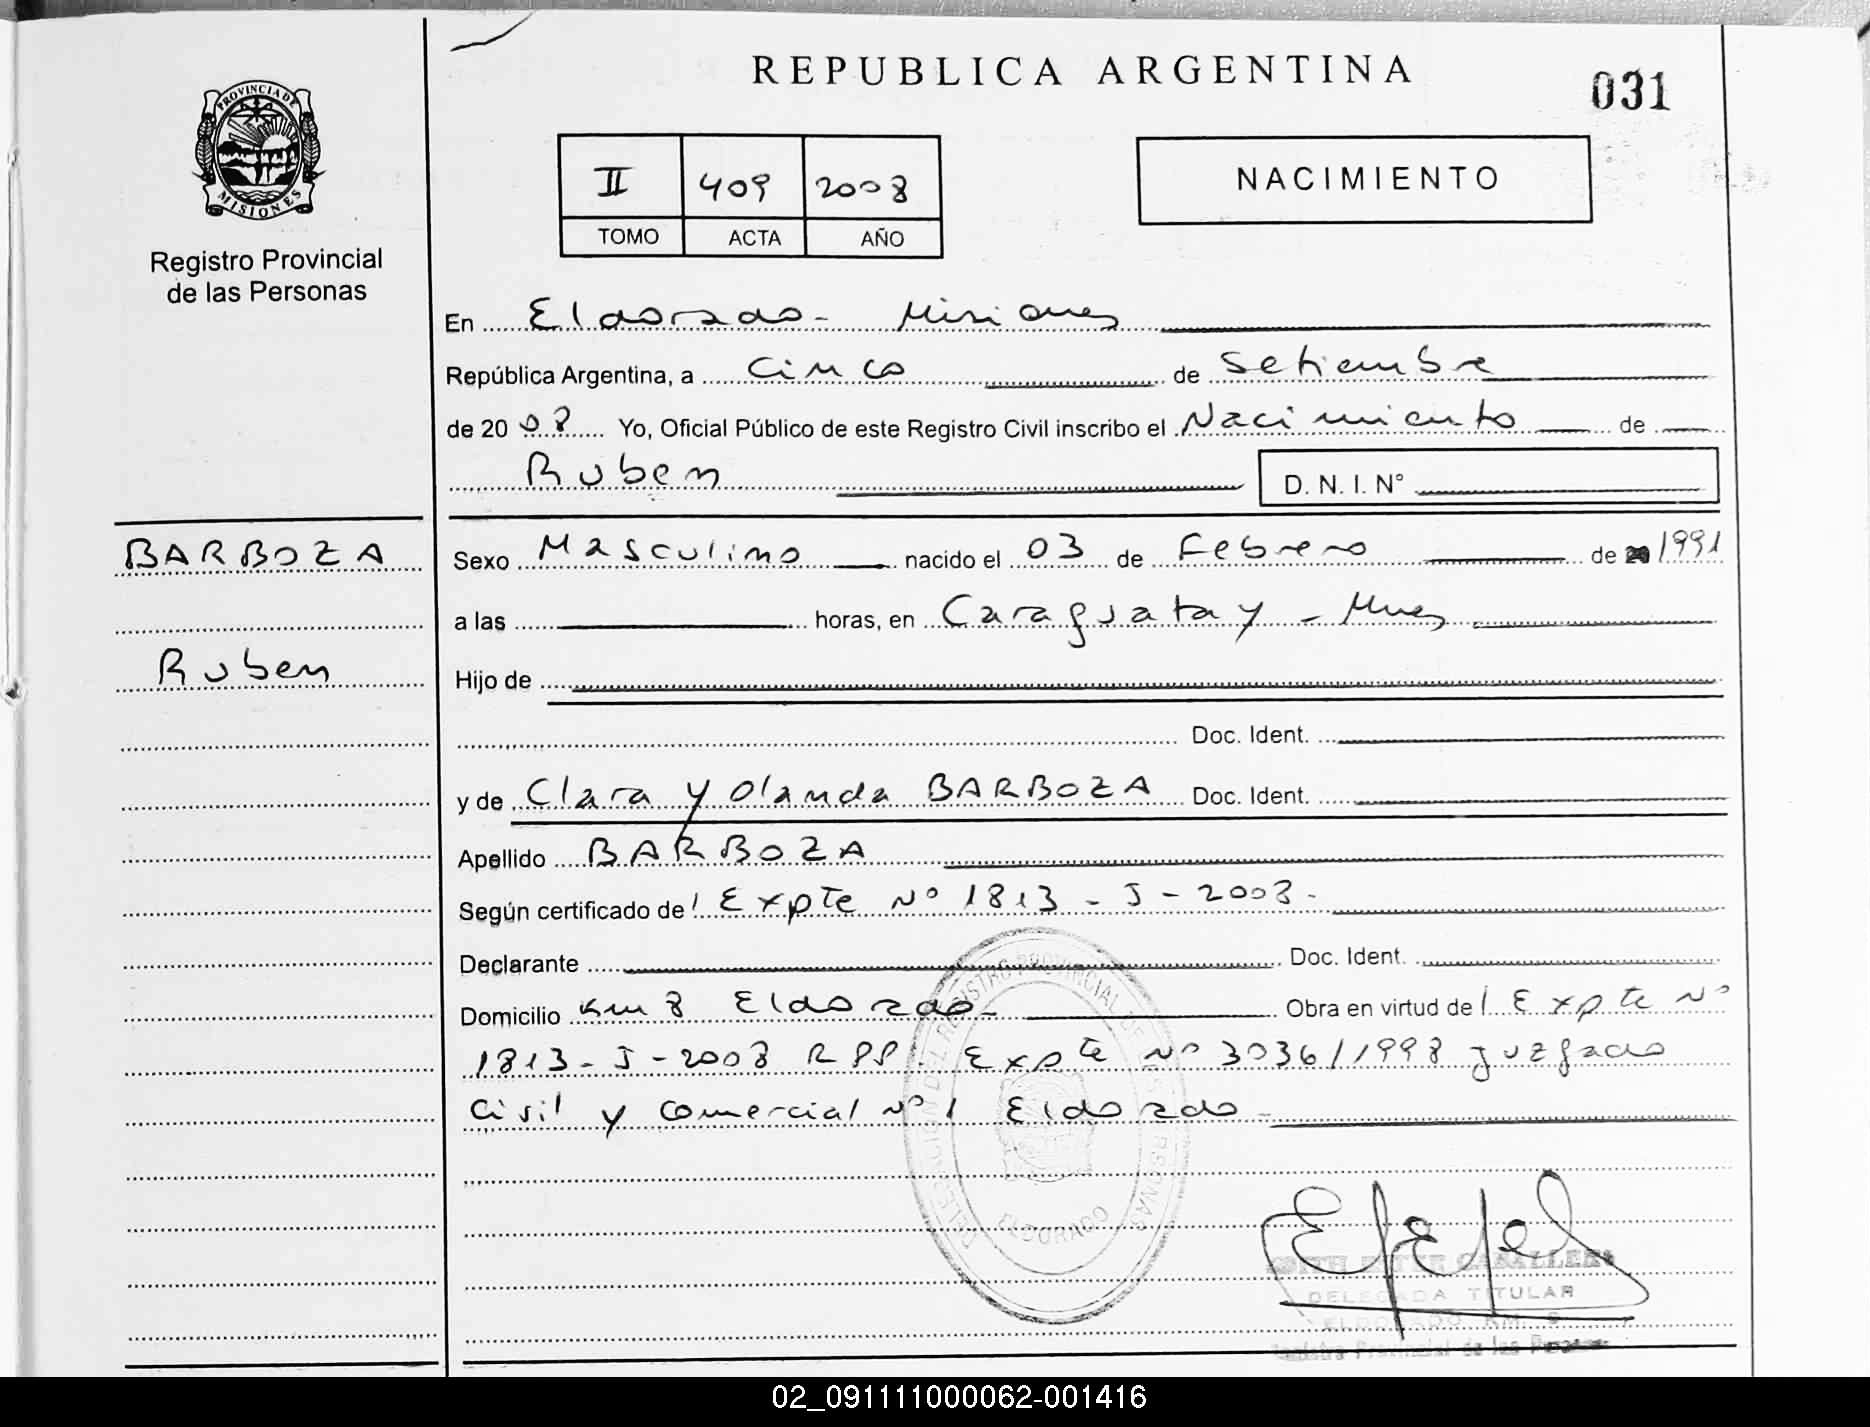 REPUBLICA ARGENTINA
031
PROVINCIA DE
MISIONES
Registro Provincial
de las Personas
II 409 2008
TOMO ACTA AÑO
NACIMIENTO
En Eldorado - Misiones
República Argentina, a Cinco de Setiembre
de 20 08 Yo, Oficial Público de este Registro Civil inscribo el Nacimiento de
Ruben D. N. I. N°
BARBOZA
Ruben
Sexo Masculino nacido el 03 de Febrero de 1991
a las horas, en Caraguatay - Mnes
Hijo de
Doc. Ident.
y de Clara Yolanda BARBOZA Doc. Ident.
Apellido BARBOZA
Según certificado de l Expte Nº 1813 - J - 2008 -
Declarante Doc. Ident.
Domicilio Km 8 Eldorado - Obra en virtud de l Expte Nº
1813 - J - 2008 RPP. Expte Nº 3036/1998 juzgado
Civil y Comercial Nº 1 Eldorado -
DELEGACION DEL REGISTRO PROVINCIAL DE LAS PERSONAS
ELDORADO
CABALLERO
DELEGADA TITULAR
ELDORADO KM. 8
Registro Provincial de las Personas
02_091111000062-001416